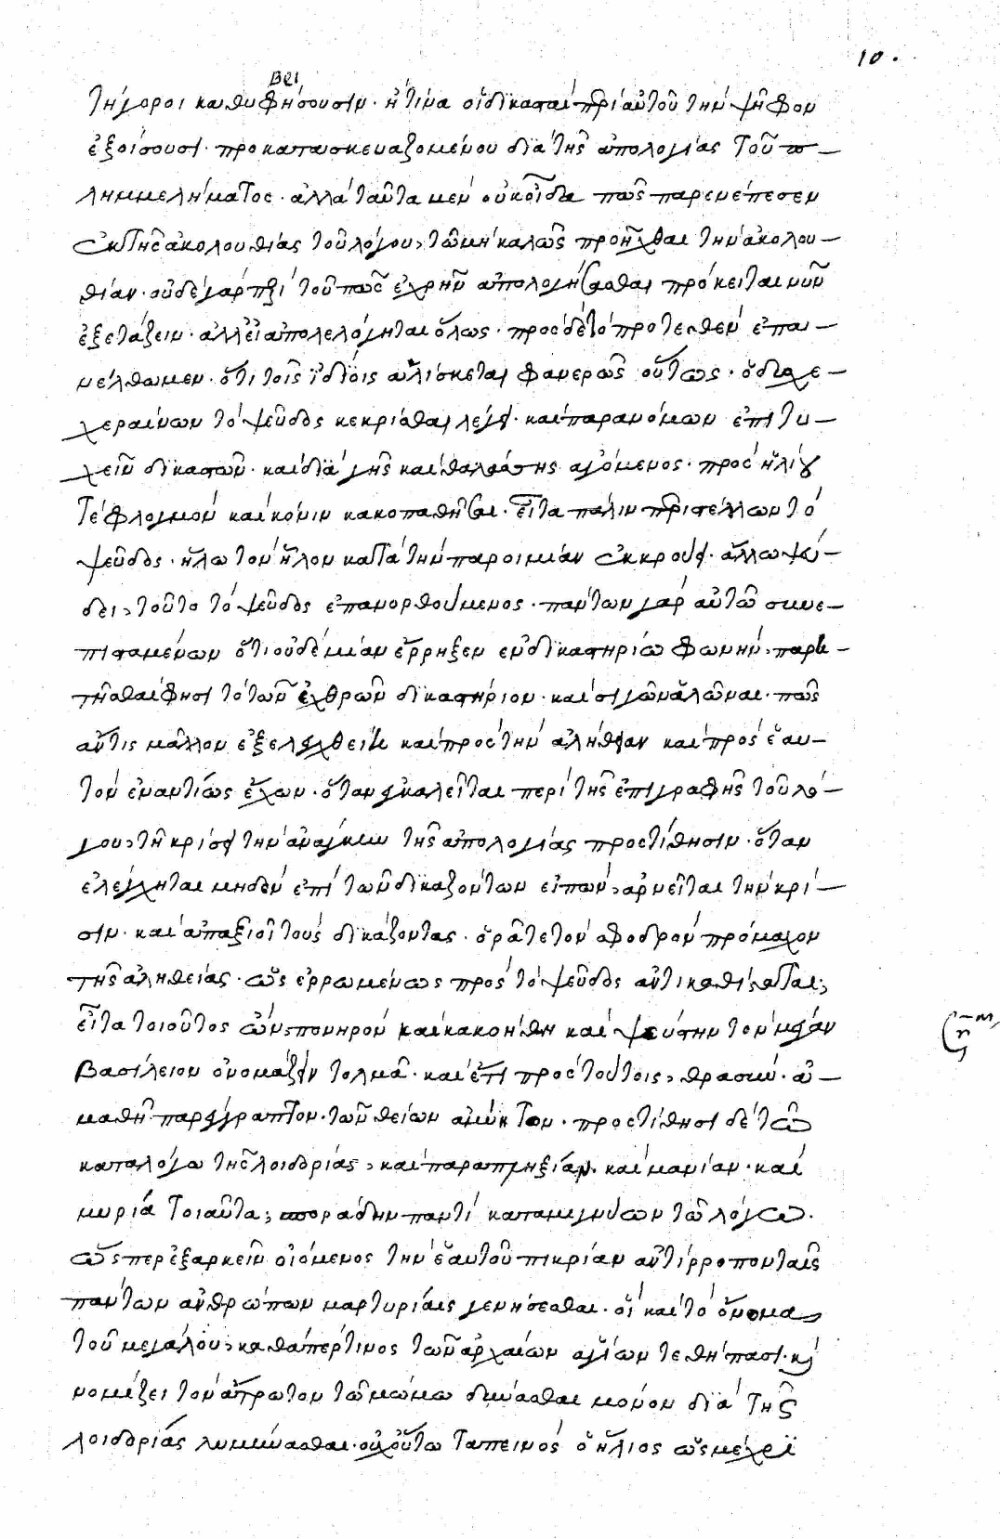 10.
βρι
τήγοροι καθυφήσουσιν· ἤ τίνα οἱ δικασταὶ περὶ αὐτοῦ τὴν ψῆφον
ἐξοίσουσι· προκατασκευαζομένου διὰ τῆς ἀπολογίας τοῦ π–
λημμελήματος· ἀλλὰ ταῦτα μὲν οὐκ οἶδα πῶς παρενέπεσεν
ἐκ τῆς ἀκολουθίας τοῦ λόγου, τῶ μὴ καλῶς προῆχθαι τὴν ἀκολου–
θίαν· οὐδὲ γὰρ περὶ τοῦ πῶς ἐχρῆν ἀπολογήσασθαι πρόκειται νῦν
ἐξετάζειν· ἀλλ' εἰ ἀπολελόγηται ὅλως· πρὸς δὲ τὸ προτεθὲν ἐπα–
νέλθωμεν· ὅτι τοῖς ἰδίοις ἁλίσκεται φανερῶς οὕτως· ὁ δυσχε–
χεραίνων τὸ ψεῦδος κεκρίσθαι λέγει· καὶ παρανόμων ἐπιτυ–
χεῖν δικαστῶν· καὶ διὰ γῆς καὶ θαλάσσης ἀγόμενος· πρὸς ἡλίου
τὲ φλογμὸν καὶ κόνιν κακοπαθῆσαι· εἶτα πάλιν περιστέλλων τὸ
ψεῦδος· ἥλω τὸν ἧλον κατὰ τὴν παροιμίαν ἐκκρούει· ἄλλω ψεύ–
δει, τοῦτο τὸ ψεῦδος ἐπανορθούμενος· πάντων γὰρ αὐτῶ συνε–
πισταμένων ὅτι οὐδεμίαν ἔρρηξεν ἐν δικαστηρίω φωνὴν, παρη–
τῆσθαι φησὶ τὸ τῶν ἐχθρῶν δικαστήριον· καὶ σιγῶν ἁλῶναι· πῶς
ἄν τις μᾶλλον ἐξελεγχθείη καὶ πρὸς τὴν ἀλήθειαν καὶ πρὸς ἑαυ–
τὸν ἐναντίως ἔχων· ὅταν ἐγκαλεῖται περὶ τῆς ἐπιγραφῆς τοῦ λό–
γου, τῆ κρίσει τὴν ἀνάγκην τῆς ἀπολογίας προστίθησιν· ὅταν
ἐλέγχηται μηδὲν ἐπὶ τῶν δικαζόντων εἰπών, ἀρνεῖται τὴν κρί–
σιν· καὶ ἀπαξιοῖ τοὺς δικάζοντας· ὁρᾶτε τὸν σφοδρὸν πρόμαχον
τῆς ἀληθείας· ὡς ἐρρωμένως πρὸς τὸ ψεῦδος ἀντικαθίσταται;
εἶτα τοιοῦτος ὢν, πονηρὸν καὶ κακοήθη καὶ ψεύστην τὸν μέγαν
βασίλειον ὀνομάζειν τολμᾶ· καὶ ἔτι πρὸς τούτοις, θρασύν· ἀ–
μαθῆ παρέγγραπτον· τῶν θείων ἀμύητον· προστίθησι δὲ τῶ
καταλόγω τῆς λοιδορίας, καὶ παραπληξίαν· καὶ μανίαν· καὶ
μυρία τοιαῦτα; σποράδην παντὶ καταμιγνύων τῶ λόγω·
ὥσπερ ἐξαρκεῖν οἰόμενος τὴν ἑαυτοῦ πικρίαν ἀντίρροπον ταῖς
πάντων ἀνθρώπων μαρτυρίαις γενήσεσθαι· οἳ καὶ τὸ ὄνομα
τοῦ μεγάλου, καθάπέρ τινος τῶν ἀρχαίων ἁγίων τεθήπασι· καὶ
νομίζει τὸν ἄπρωτον τῶ μώμω δύνασθαι μόνον διὰ τῆς
λοιδορίας λυμήνασθαι· οὐχ οὕτω ταπεινὸς ὁ ἥλιος ὡς μέχρι